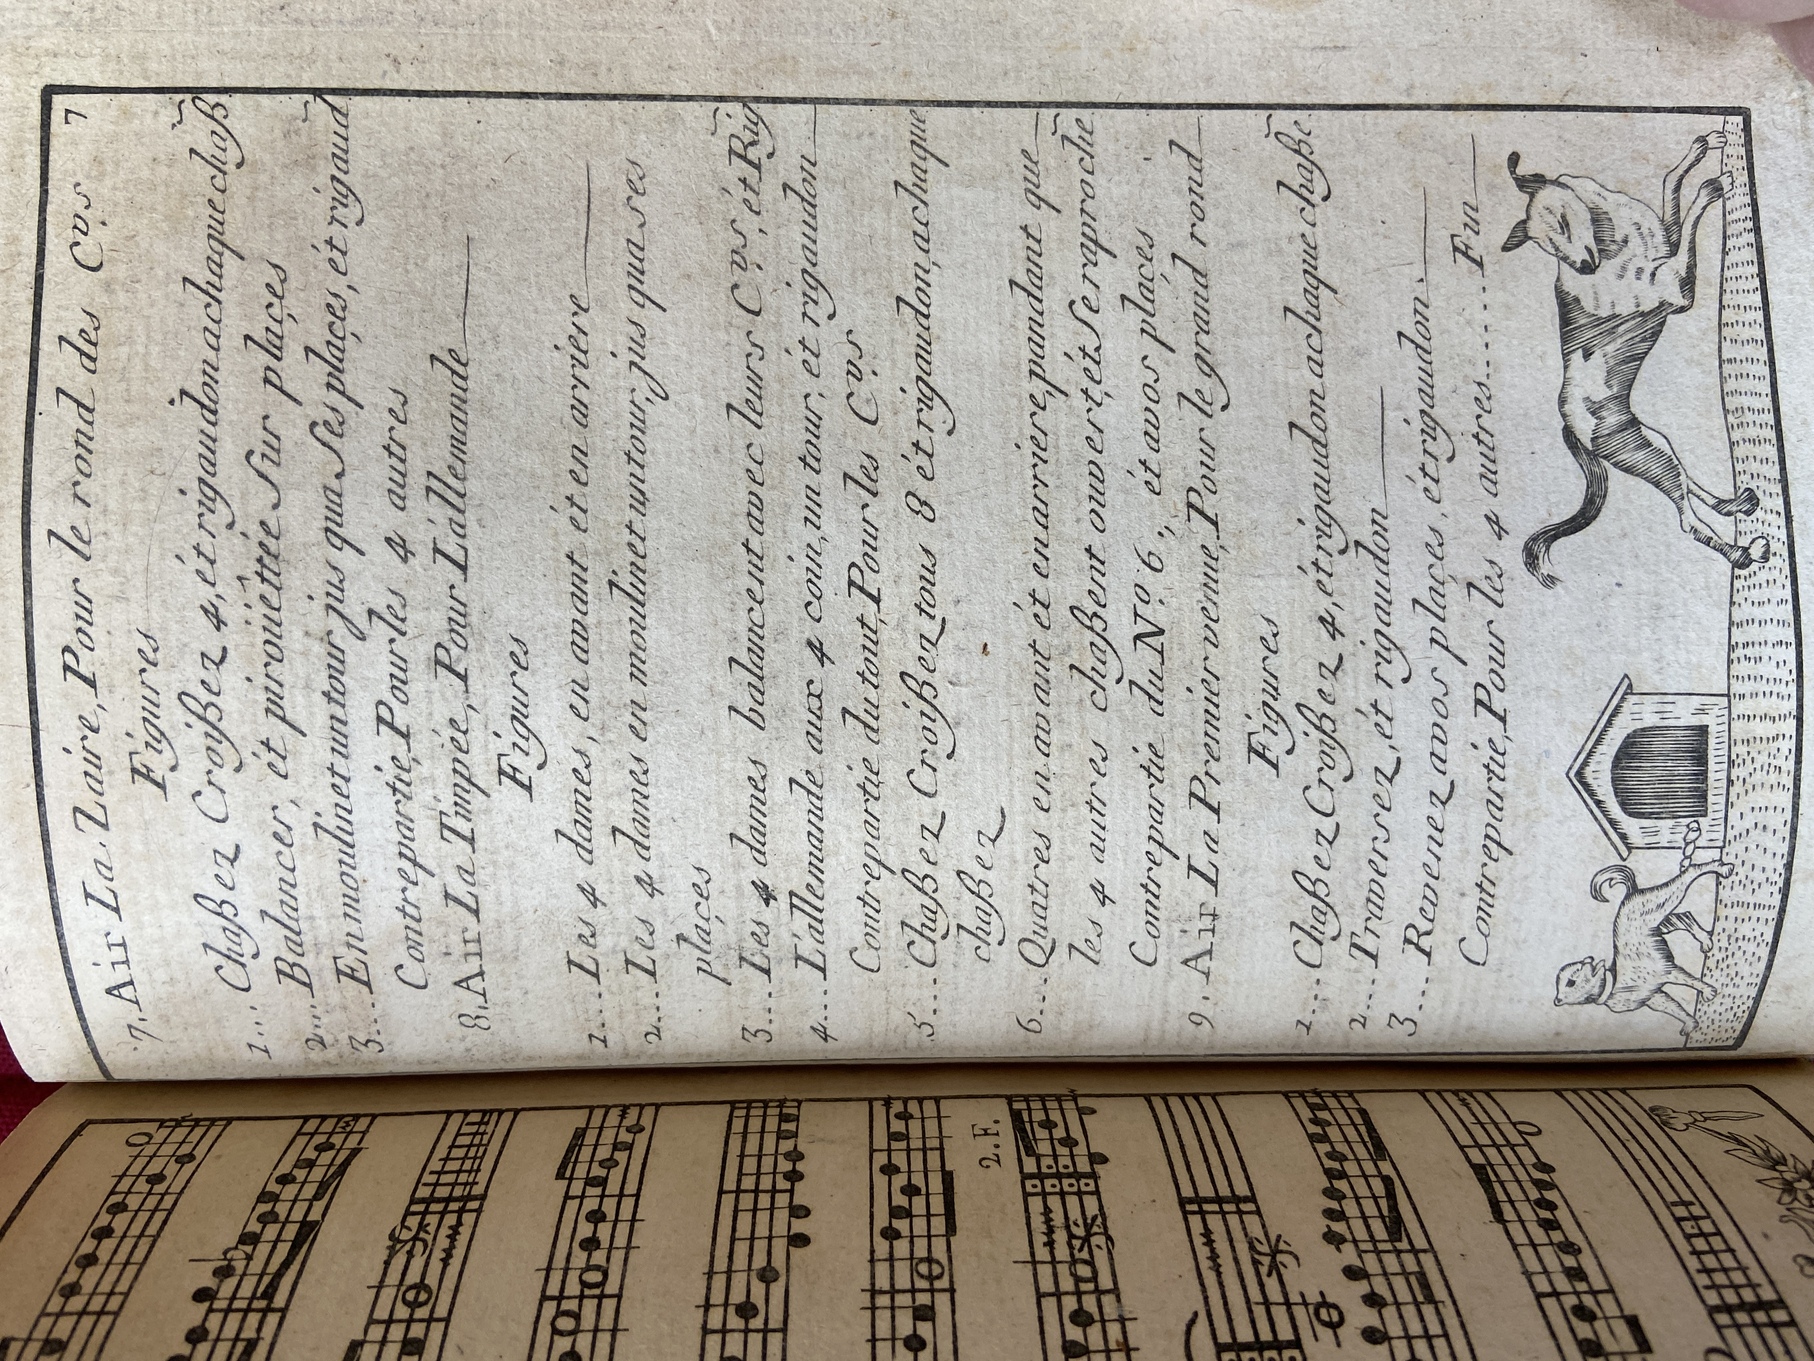 7
7. Air La Zaire, Pour le rond des C^vs.
Figures
1... Chaßez Croißez 4, ét rigaudon a chaque chaß
2... Balancer, ét pirouêttée Sur plaçes
3... En moulinet un tour jus qua Ses plaçes, ét rigaud
Contrepartie, Pour les 4 autres
8. Air La Timpée, Pour L'allemande
Figures
1... Les 4 dames, en avant ét en arriere
2... Les 4 dames en moulinet un tour, jus qua ses
plaçes
3... Les 4 dames balancent avec leurs C^vs. ét Rig
4... L'allemande aux 4 coin, un tour, ét rigaudon
Contrepartie du tout, Pour les C^vs.
5... Chaßez Croißez tous 8 ét rigaudon, a chaque
chaßez
6... Quatres en avant ét en arriere, pandant que
les 4 autres chaßent ouvert, ét Se raproche
Contrepartie du N^o. 6, ét a vos plaçes
9. Air La Premiér venue, Pour le grand rond
Figures
1... Chaßez Croißez 4, ét rigaudon a chaque chaße
2... Traversez, ét rigaudon
3... Revenez a vos plaçes, ét rigaudon.
Contrepartie, Pour les 4 autres...... Fin
2. F.